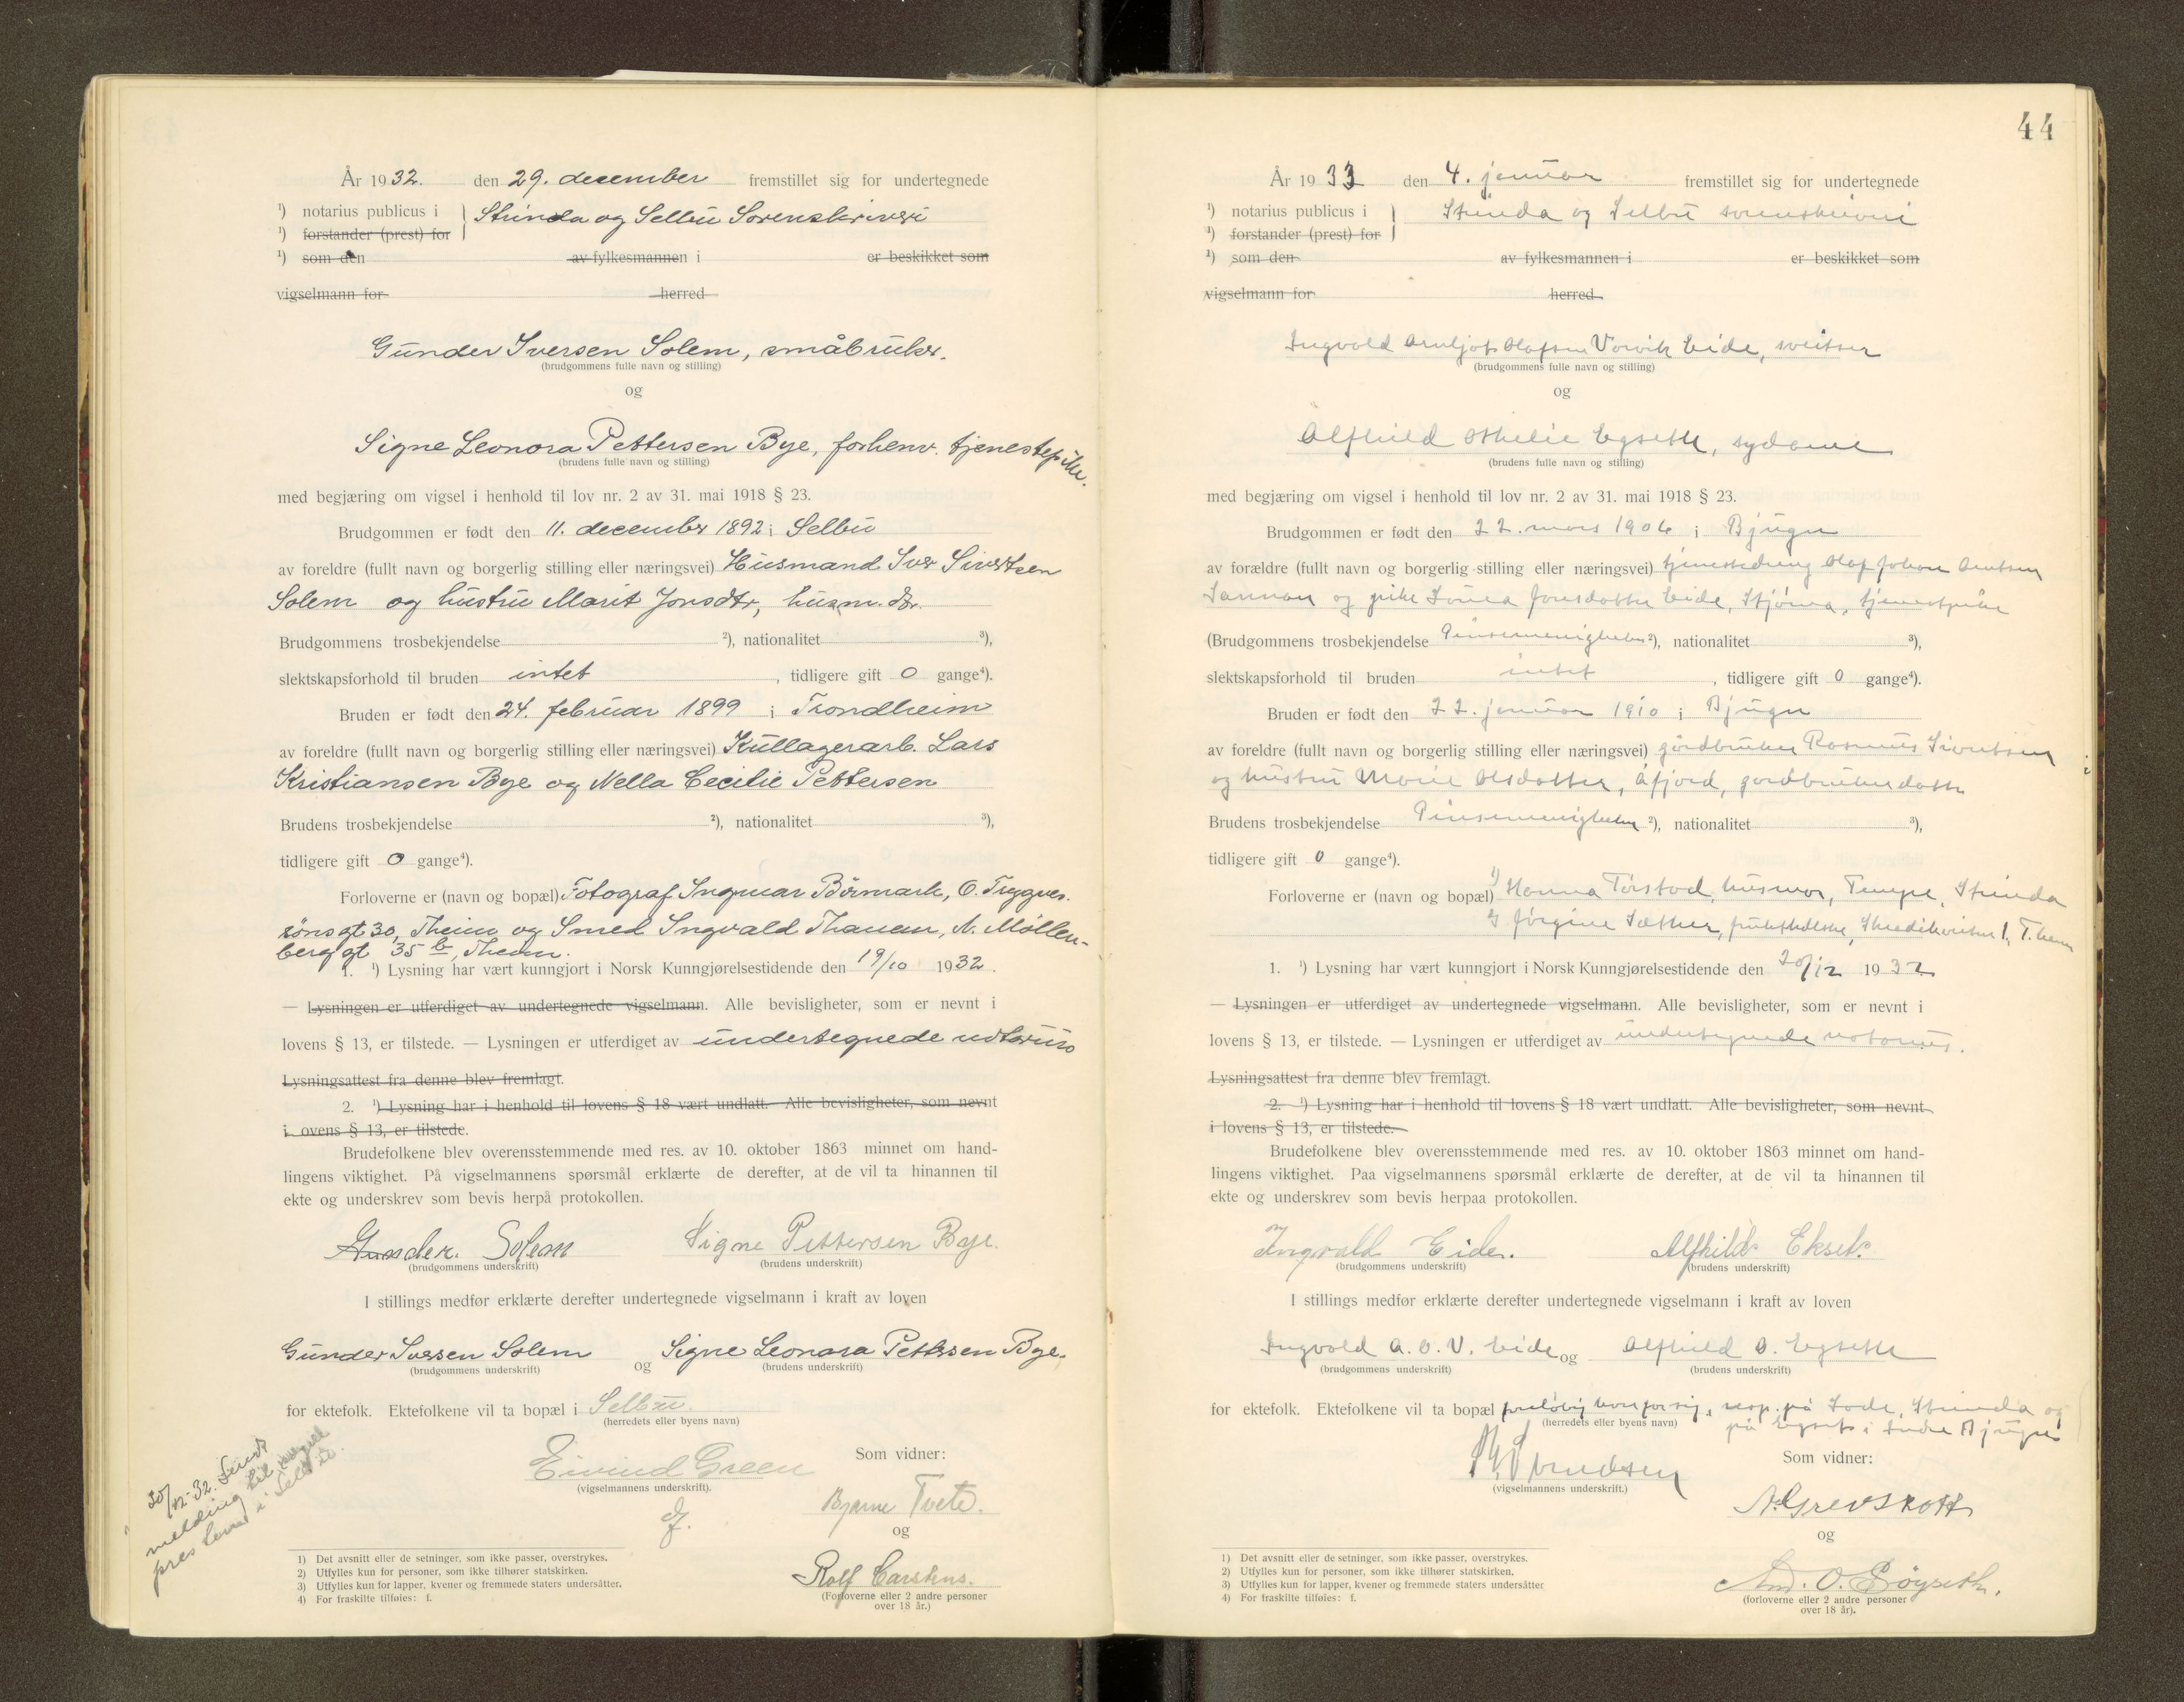 År 1932. den 29. december fremstillet sig for undertegnede
¹) notarius publicus i Strinda og Selbu Sorenskriveri
¹) forstander (prest) for
¹) som den av fylkesmannen i er beskikket som
vigselmann for herred
Gunder Iversen Solem, småbruker.
(brudgommens fulle navn og stilling)
og
Signe Leonora Pettersen Bye, forhenv. tjenestepike.
(brudens fulle navn og stilling)
med begjæring om vigsel i henhold til lov nr. 2 av 31. mai 1918 § 23.
Brudgommen er født den 11. december 1892 i Selbu
av foreldre (fullt navn og borgerlig stilling eller næringsvei) Husmand Iver Sivertsen
Solem og hustru Marit Jonsdtr, husm. dtr.
Brudgommens trosbekjendelse ²), nationalitet ³),
slektskapsforhold til bruden intet , tidligere gift 0 gange⁴).
Bruden er født den 24. februar 1899 i Trondheim
av foreldre (fullt navn og borgerlig stilling eller næringsvei) Kullagerarb. Lars
Kristiansen Bye og Nella Cecilie Pettersen
Brudens trosbekjendelse ²), nationalitet ³),
tidligere gift 0 gange⁴).
Forloverne er (navn og bopæl) Fotograf Ingmar Börmark, O. Tryggves.
sönsgt 30, Theim og Smed Ingvald Thanem, N. Möllen-
berggt 35 b, Theim.
1. ¹) Lysning har vært kunngjort i Norsk Kunngjørelsestidende den 19/10 1932.
— Lysningen er utferdiget av undertegnede vigselmann. Alle bevisligheter, som er nevnt i
lovens § 13, er tilstede. — Lysningen er utferdiget av undertegnede notarius
Lysningsattest fra denne blev fremlagt.
2. ¹) Lysning har i henhold til lovens § 18 vært undlatt. Alle bevisligheter, som nevnt
i ovens § 13, er tilstede.
Brudefolkene blev overensstemmende med res. av 10. oktober 1863 minnet om hand-
lingens viktighet. På vigselmannens spørsmål erklærte de derefter, at de vil ta hinannen til
ekte og underskrev som bevis herpå protokollen.
Gunder. Solem Signe Pettersen Bye.
(brudgommens underskrift) (brudens underskrift)
I stillings medfør erklærte derefter undertegnede vigselmann i kraft av loven
Gunder Iversen Solem og Signe Leonora Pettersen Bye.
(brudgommens underskrift) (brudens underskrift)
for ektefolk. Ektefolkene vil ta bopæl i Selbu.
(herredets eller byens navn)
Eivind Green Som vidner:
(vigselmannens underskrift).
Bjarne Tvete.
og
Rolf Carstens.
(Forloverne eller 2 andre personer
over 18 år.)
30/12-32. Sendt
melding til vigsel
i Selbu.
1) Det avsnitt eller de setninger, som ikke passer, overstrykes.
2) Utfylles kun for personer, som ikke tilhører statskirken.
3) Utfylles kun for lapper, kvener og fremmede staters undersåtter.
4) For fraskilte tilføies: f.
44
År 1933 den 4. januar fremstillet sig for undertegnede
¹) notarius publicus i Strinda og Selbu sorenskriveri
¹) forstander (prest) for
¹) som den av fylkesmannen i er beskikket som
vigselmann for herred.
Ingvald Arnljot Olafsen Vorvik Eide, sveitser
(brudgommens fulle navn og stilling)
og
Alfhild Othelie Egseth, sydame
(brudens fulle navn og stilling)
med begjæring om vigsel i henhold til lov nr. 2 av 31. mai 1918 § 23.
Brudgommen er født den 22. mars 1906 i Bjugn
av forældre (fullt navn og borgerlig stilling eller næringsvei) tjenestedreng Olaf Johan Arntsen
og pike Jonsdatter Eide, Stjørna, tjenestepike
(Brudgommens trosbekjendelse Pinsemenigheten ²), nationalitet ³),
slektskapsforhold til bruden intet , tidligere gift 0 gange⁴).
Bruden er født den 22. januar 1910 i Bjugn
av foreldre (fullt navn og borgerlig stilling eller næringsvei) gårdbruker Rasmus Sivertsen
og hustru Marie Olsdatter, Åfjord, gårdbrukerdatter
Brudens trosbekjendelse Pinsemenigheten ²), nationalitet ³),
tidligere gift 0 gange⁴).
Forloverne er (navn og bopæl) 1) Hanna Törstad, husmor, Tempe, Strinda
2) Jörgine Sæther, T.heim
1. ¹) Lysning har vært kunngjort i Norsk Kunngjørelsestidende den 20/12 1932
— Lysningen er utferdiget av undertegnede vigselmann. Alle bevisligheter, som er nevnt i
lovens § 13, er tilstede. — Lysningen er utferdiget av undertegnede notarius.
Lysningsattest fra denne blev fremlagt.
2. ¹) Lysning har i henhold til lovens § 18 vært undlatt. Alle bevisligheter, som nevnt
i lovens § 13, er tilstede.
Brudefolkene blev overensstemmende med res. av 10. oktober 1863 minnet om hand-
lingens viktighet. Paa vigselmannens spørsmål erklærte de derefter, at de vil ta hinannen til
ekte og underskrev som bevis herpaa protokollen.
Ingvald Eide. Alfhild Ekset.
(brudgommens underskrift) (brudens underskrift)
I stillings medfør erklærte derefter undertegnede vigselmann i kraft av loven
Ingvald A. O. V. Eide og Alfhild O. Egseth
(brudgommens underskrift) (brudens underskrift)
for ektefolk. Ektefolkene vil ta bopæl foreløbig hver for sig, resp. på Strinda og
(herredets eller byens navn) på Egset i Indre Bjugn
Som vidner:
(vigselmannens underskrift.)
A. Grevskott
og
And. O. Böyseth.
(forloverne eller 2 andre personer
over 18 år).
1) Det avsnitt eller de setninger, som ikke passer, overstrykes.
2) Utfylles kun for personer, som ikke tilhører statskirken.
3) Utfylles kun for lapper, kvener og fremmede staters undersåtter
4) For fraskilte tilføies: f.